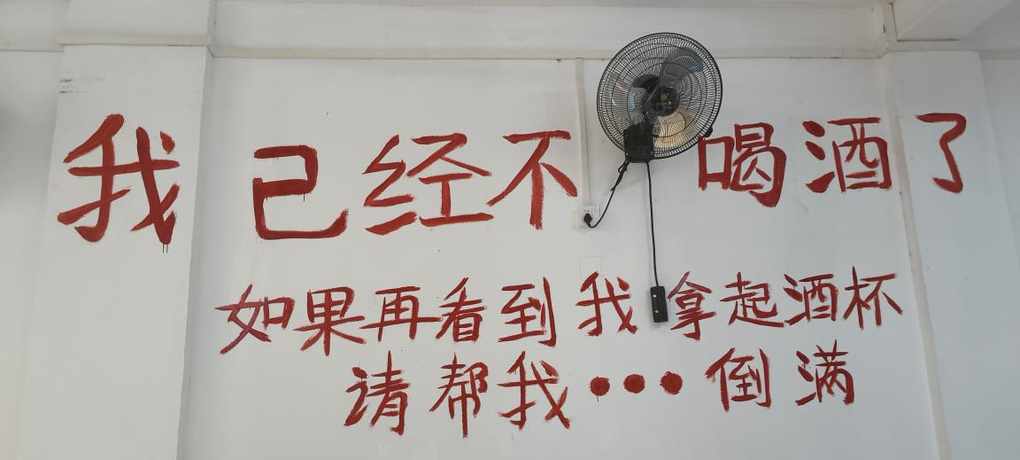 我已经不喝酒了
如果再看到我拿起酒杯
请帮我···倒满